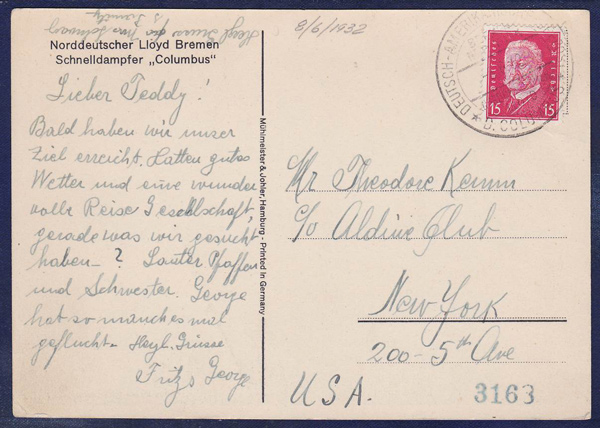 8/6/1932
Norddeutscher Lloyd Bremen
Schnelldampfer „Columbus"
Lieber Teddy!
Bald haben wir unser
Ziel erreicht. Hatten gutes
Wetter und eine wunder
volle Reise Gesellschaft,
gerade was wir gesucht
haben-? Lauter Pfaffen
und Schwester. George
hat so manches mal
geflucht- Heyl. Grüsse
Fritz George
Mühlmeister & Johler, Hamburg - Printed in Germany
DEUTSCH-AMERIK
D. COLU
Deutsches Reich
15 15
Mr Theodore Kemm
c/o Aldine Club
New York
200-5th Ave
U.S.A.
3163